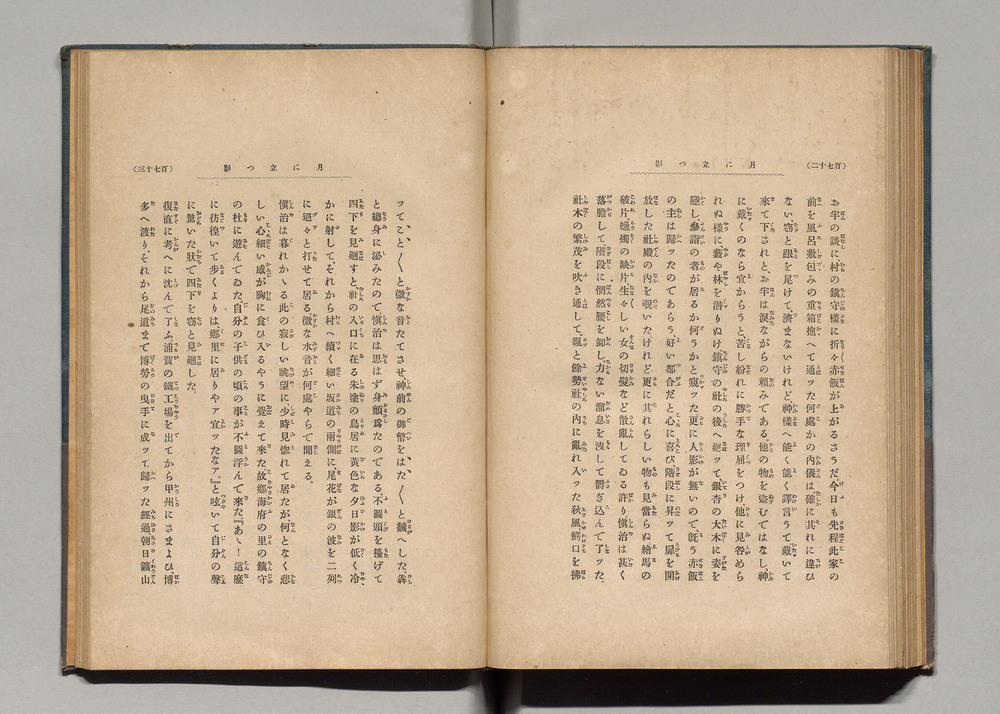 (百七十二)
月に立つ影
お半の談に村の鎮守様に折々赤飯が上がるさうだ今日も先程此家の
前を風呂敷包みの重箱抱へて通ッた何處かの内儀は確に其れに違ひ
ない、窃と跟を尾けて、濟まないけれど、神樣へ能く能く譯言うて戴いて
來て下されと、お半は涙ながらの頼みである他の物を盜むではなし、神
に戴くのなら宜からうと、苦し紛れに勝手な理屈をつけ他に見咎めら
れぬ樣に藪や林を潜りぬけ鎮守の社の後へ廻ッて銀杏の大木に姿を
隱し、參詣の者が居るか何うかと窺ッた更に人影が無いので、旣う赤飯
の主は歸ッたのであらう、好い都合だと、心に喜び階段に昇ッて扉を開
放した社殿の内を覗いたけれど更に其れらしい物も見當らぬ繪馬の
破片、蠟燭の缺片、生々しい女の切髮など散亂してゐる許り愼治は甚く
落膽して階段に惘然腰を卸し、力ない溜息を洩して鬱ぎ込んで了ッた。
社木の繁茂を吹き通して、颯と餘勢社の内に亂れ入ッた秋風、鰐口を拂
(百七十三)
月に立つ影
ッてこと〳〵と微な音たてさせ、神前の御幣をはた〳〵と飜へした、犇
と總身に泌みたので、愼治は思はず身顫爲たのである、不圖頭を擡げて
四下を見廻すと、社の入口に在る朱塗の鳥居に黃色な夕日影が低く冷
かに射して、それから村へ續く細い坂道の兩側に尾花が銀の波を二列
に返々と打せて居る微な水音が何處やらで聞える。
愼治は暮れかゝる此の寂しい眺望に少時見惚れて居たが何となく悲
しい心細い感が胸に食ひ入るやうに覺えて來た故鄕海府の里の鎮守
の杜に遊んでゐた、自分の子供の頃の事が不圖浮んで來た『あゝ！這麼
に彷徨いて步くよりは鄕里に居りやァ宜ッたなァ』と呟いて自分の聲
に驚いた狀で四下を窃と見廻した。
復直に考へに沈んで了ふ、浦賀の鐵工場を出てから甲州にさまよひ、博
多へ渡り、それから尾道まで博勞の曳手に成ッて歸ッた經過朝日鑛山